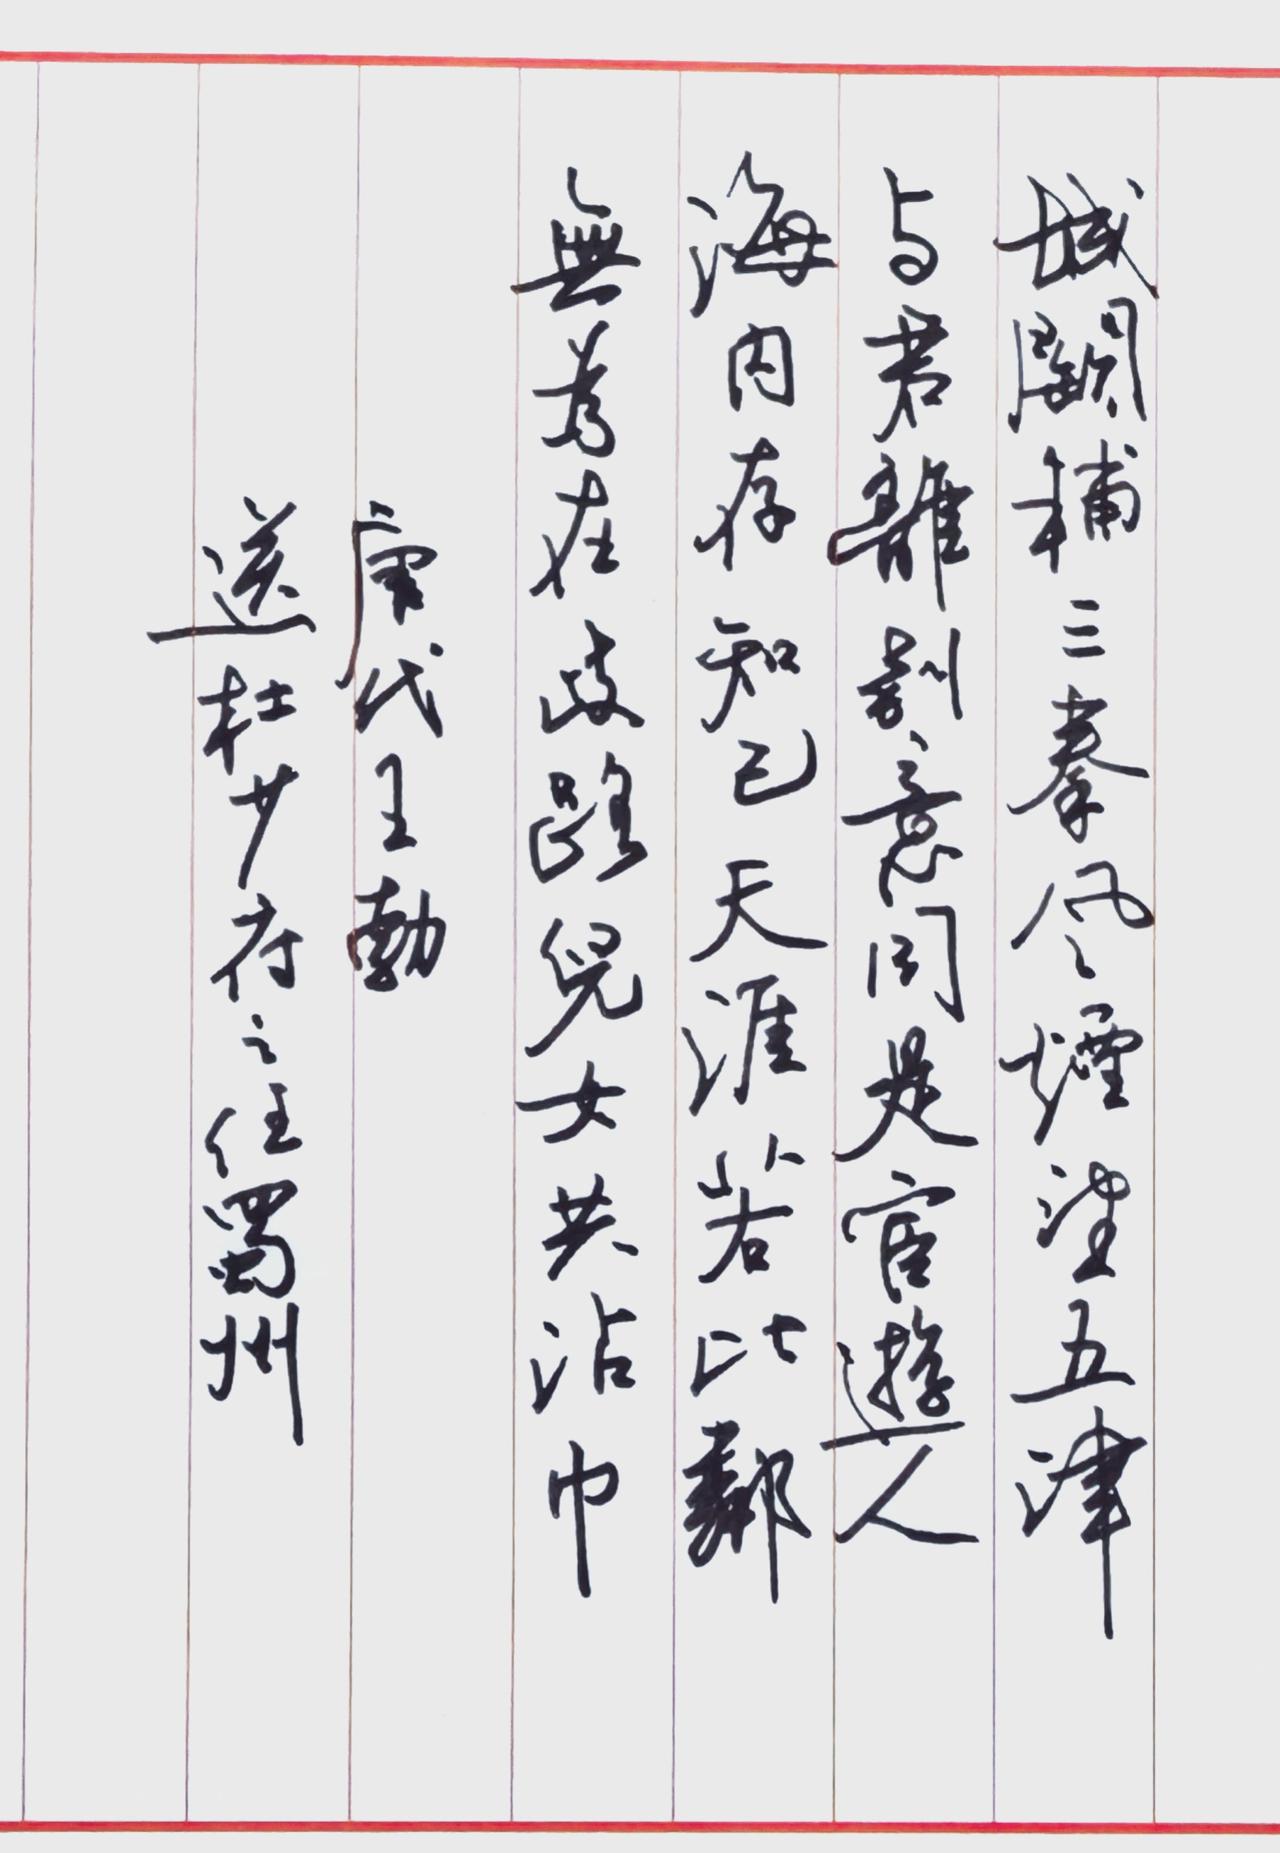 城闕輔三秦风煙望五津
与君離別意同是宦遊人
海内存知己天涯若比鄰
無為在歧路兒女共沾巾
唐代王勃
送杜少府之任蜀州